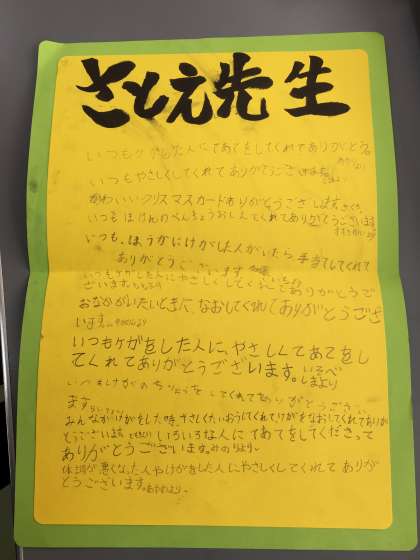 さとえ先生
いつもケガした人にてあてをしてくれてありがとう。
いつもやさしくしてくれてありがとうござ
かわいいクリスマスカードありがとうござします。
いつもほけんのべんきょうおしえてくれてありがとうございます
いつも、ほうかにけがした人がいたら手当てしてくれて
ありがとうございます
いつもケガした人にやさしくしてくれてありがとうご
ざいます。
おなかがいたいときに、なおしてくれてありがとうござ
います。
いつもケガをした人に、やさしくてあてをし
てくれてありがとうございます。
しまより
いつもけがのちりょうをしてくれてありがとうござい
ます
みんながけがをした時、やさしくたいおうしてくれて、けがをなおしてくれてありが
とうございます。いろいろな人にてあてをしてくださって
ありがとうございます。みのりより
体調が悪くなった人やけがをした人にやさしくしてくれてありが
とうございます。